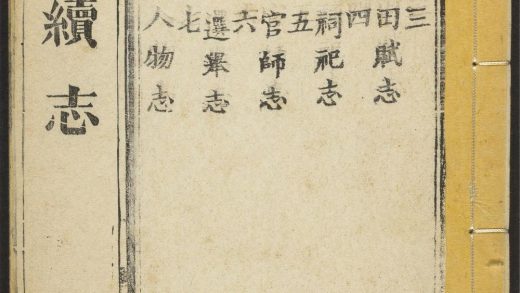 三
田賦志
四
祠祀志
五
官師志
六
選舉志
七
人物志
續志